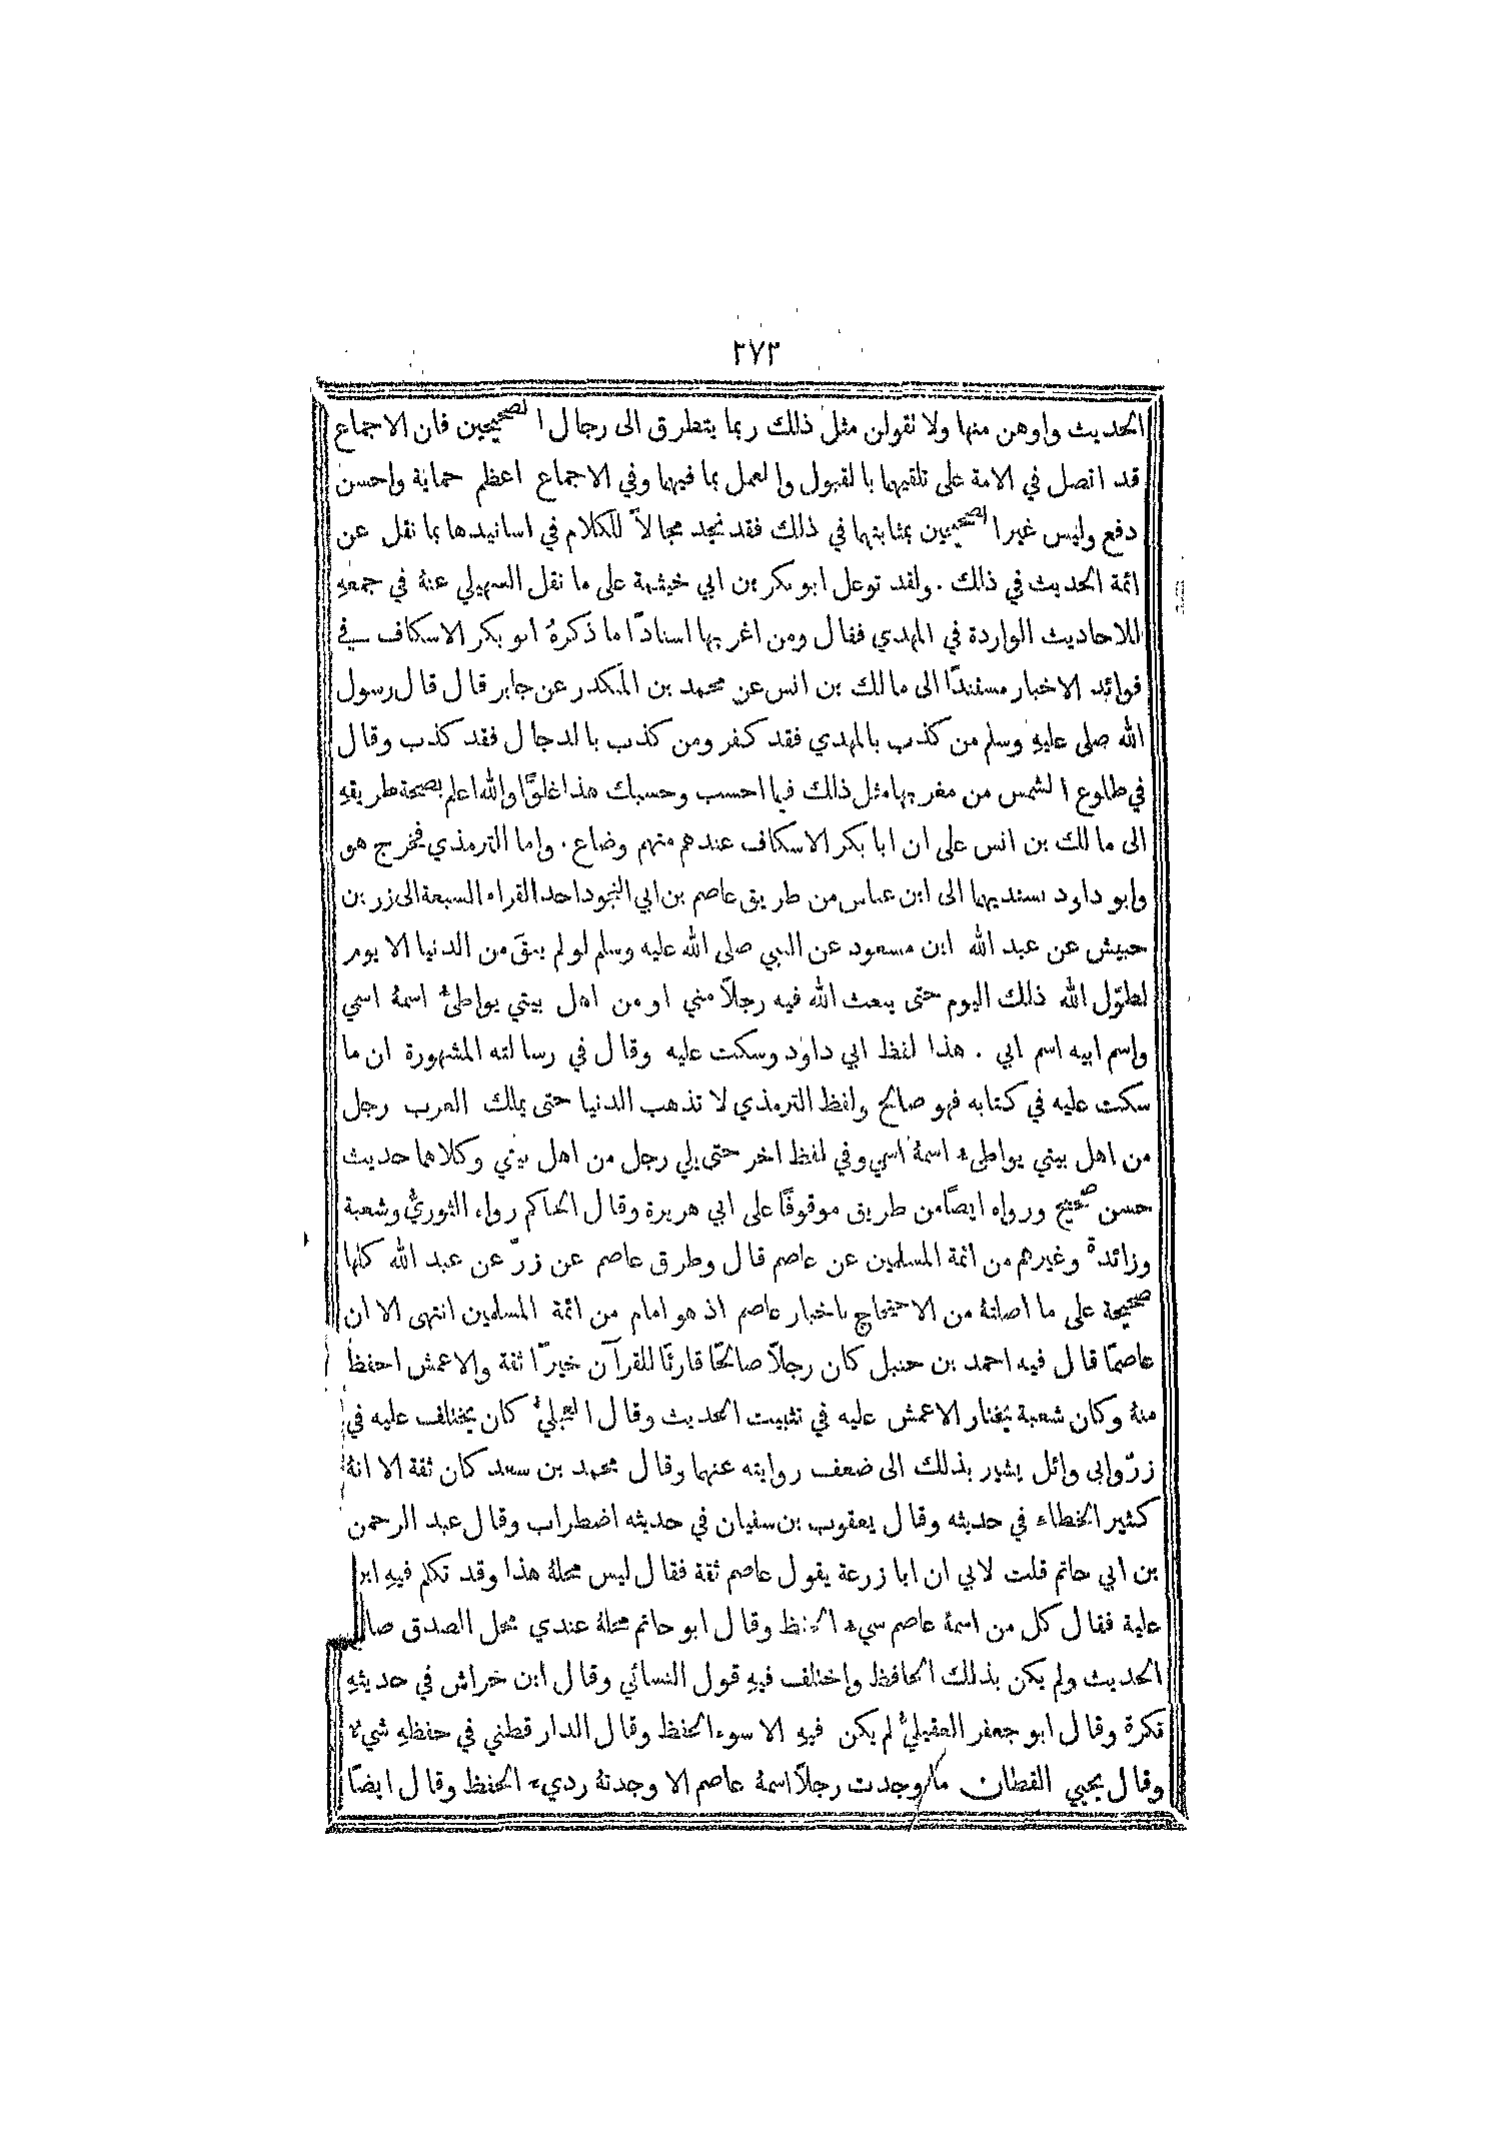 ٢٧٣
الحديث واوهن منها ولا نقولن مثل ذلك ربما يتطرق الى رجال الصحيحين فان الاجماع
قد اتصل في الامة على تلقيهما بالقبول والعمل بما فيهما وفي الاجماع اعظم حماية واحسن
دفع وليس غير الصحيحين بمثابتهما في ذلك فقد نجد مجالاً للكلام في اسانيدها بما نقل عن
ائمة الحديث في ذلك . ولقد توغل ابو بكر بن ابي خيثمة على ما نقل السهيلي عنهُ في جمعهِ
للاحاديث الواردة في المهدي فقال ومن اغربها اسنادًا ما ذكرهُ ابو بكر الاسكاف في
فوائد الاخبار مستندًا الى مالك بن انس عن محمد بن المنكدر عن جابر قال قال رسول
الله صلى عليهِ وسلم من كذب بالمهدي فقد كفر ومن كذب بالدجال فقد كذب وقال
في طلوع الشمس من مغربها مثل ذلك فيما احسب وحسبك هذا غلوًّا والله اعلم بصحة طريقهِ
الى مالك بن انس على ان ابا بكر الاسكاف عندهم متهم وضاع . واما الترمذي فخرج هو
وابو داود بسنديهما الى ابن عباس من طريق عاصم بن ابي النجود احد القراء السبعة الى زر بن
حبيش عن عبد الله ابن مسعود عن النبي صلى الله عليه وسلم لو لم يبقَ من الدنيا الا يوم
لطوّل الله ذلك اليوم حتى يبعث الله فيه رجلاً مني او من اهل بيتي يواطئُ اسمهُ اسمي
واسم ابيه اسم ابي . هذا لفظ ابي داوُد وسكت عليه وقال في رسالته المشهورة ان ما
سكت عليه في كتابه فهو صالح ولفظ الترمذي لا تذهب الدنيا حتى يملك العرب رجل
من اهل بيتي يواطىء اسمهُ اسمي وفي لفظ اخر حتى يلي رجل من اهل بيتي وكلاهما حديث
حسن صحيح ورواه ايضًا من طريق موقوفًا على ابي هريرة وقال الحاكم رواه الثوريُّ وشعبة
وزائدة وغيرهم من ائمة المسلمين عن عاصم قال وطرق عاصم عن زرّ عن عبد الله كلها
صحيحة على ما اصلتهُ من الاحتجاج باخبار عاصم اذ هو امام من ائمة المسلمين انتهى الا ان
عاصمًا قال فيه احمد بن حنبل كان رجلاً صالحًا قارئًا للقرآن خيرًا ثقة والاعمش احفظ
منهُ وكان شعبة يختار الاعمش عليه في تثبيت الحديث وقال العجليُّ كان يختلف عليه في
زرّ وابي وائل يشير بذلك الى ضعف روايته عنهما وقال محمد بن سعد كان ثقة الا انهُ
كثير الخطاء في حديثه وقال يعقوب بن سفيان في حديثه اضطراب وقال عبد الرحمن
بن ابي حاتم قلت لابي ان ابا زرعة يقول عاصم ثقة فقال ليس محلهُ هذا وقد تكلم فيهِ ابن
علية فقال كل من اسمهُ عاصم سيء الحفظ وقال ابو حاتم محلهُ عندي محل الصدق صالح
الحديث ولم يكن بذلك الحافظ واختلف فيهِ قول النسائي وقال ابن خراش في حديثهِ
نكرة وقال ابو جعفر العقيليُّ لم يكن فيهِ الا سوء الحفظ وقال الدار قطني في حفظهِ شيء
وقال يحيى القطان ما وجدت رجلاً اسمهُ عاصم الا وجدتهُ رديء الحفظ وقال ايضًا